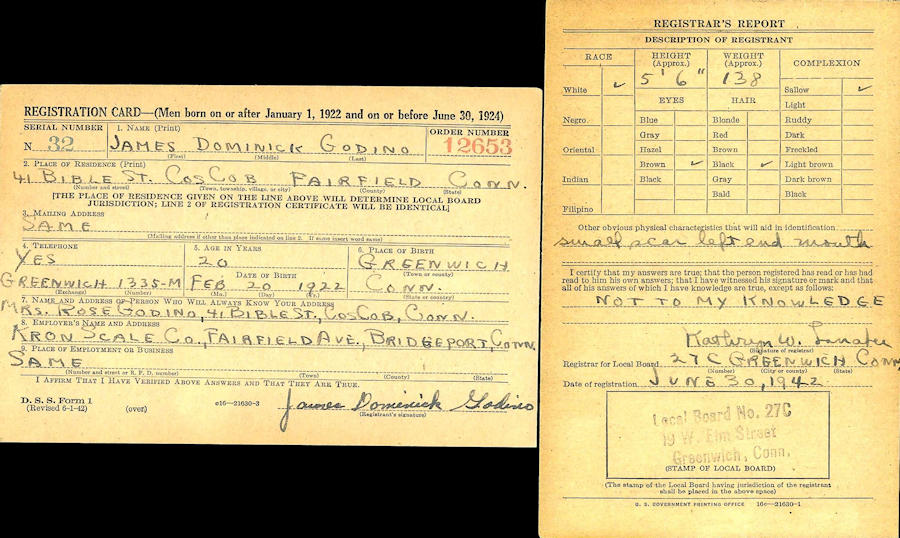 REGISTRATION CARD—(Men born on or after January 1, 1922 and on or before June 30, 1924)
SERIAL NUMBER
1. NAME (Print)
ORDER NUMBER
N 32
JAMES DOMINICK GODINO
12653
(First) (Middle) (Last)
2. PLACE OF RESIDENCE (Print)
41 BIBLE ST. COS COB FAIRFIELD CONN.
(Number and street) (Town, township, village, or city) (County) (State)
[THE PLACE OF RESIDENCE GIVEN ON THE LINE ABOVE WILL DETERMINE LOCAL BOARD
JURISDICTION; LINE 2 OF REGISTRATION CERTIFICATE WILL BE IDENTICAL]
3. MAILING ADDRESS
SAME
(Mailing address if other than place indicated on line 2. If same insert word same)
4. TELEPHONE
5. AGE IN YEARS
6. PLACE OF BIRTH
YES
20
GREENWICH
DATE OF BIRTH
(Town or county)
GREENWICH 1335-M
FEB 20 1922
CONN.
(Exchange) (Number)
(Mo.) (Day) (Yr.)
(State or country)
7. NAME AND ADDRESS OF PERSON WHO WILL ALWAYS KNOW YOUR ADDRESS
MRS. ROSE GODINO, 41 BIBLE ST., COS COB, CONN.
8. EMPLOYER'S NAME AND ADDRESS
KRON SCALE CO., FAIRFIELD AVE., BRIDGEPORT, CONN.
9. PLACE OF EMPLOYMENT OR BUSINESS
SAME
(Number and street or R. F. D. number) (Town) (County) (State)
I AFFIRM THAT I HAVE VERIFIED ABOVE ANSWERS AND THAT THEY ARE TRUE.
D. S. S. Form 1
(Revised 6-1-42) (over) c16—21630-3
James Dominick Godino
(Registrant's signature)
REGISTRAR'S REPORT
DESCRIPTION OF REGISTRANT
RACE
HEIGHT (Approx.)
WEIGHT (Approx.)
COMPLEXION
5' 6"
138
White ✓
Sallow ✓
EYES
HAIR
Light
Negro
Blue
Blonde
Ruddy
Gray
Red
Dark
Oriental
Hazel
Brown
Freckled
Brown ✓
Black ✓
Light brown
Indian
Black
Gray
Dark brown
Bald
Black
Filipino
Other obvious physical characteristics that will aid in identification
small scar left end mouth
I certify that my answers are true; that the person registered has read or has had
read to him his own answers; that I have witnessed his signature or mark and that
all of his answers of which I have knowledge are true, except as follows:
NOT TO MY KNOWLEDGE
Kathryn W.
(Signature of registrar)
Registrar for Local Board 27C GREENWICH CONN
(Number) (City or county) (State)
Date of registration JUNE 30, 1942
Local Board No. 27C
19 W. Elm Street
Greenwich, Conn.
(STAMP OF LOCAL BOARD)
(The stamp of the Local Board having jurisdiction of the registrant
shall be placed in the above space)
U. S. GOVERNMENT PRINTING OFFICE 16c—21630-1